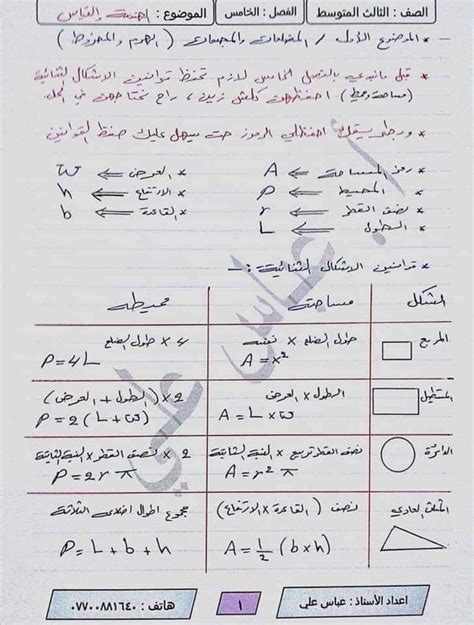 الصف : الثالث المتوسط
الفصل : الخامس
الموضوع : هندسة القياس
* الموضوع الأول / المضلعات والمجسمات ( الهرم والمخروط )
* قبل مانبدي بالفصل الخامس لازم نحفظ قوانين الاشكال الثنائية
( مساحة ومحيط ) احفظهن كلش زين ، راح نحتاجهن في الحل .
* ورجعلى بيقلك احفظلي الرموز حتة يسهل عليك حفظ القوانين
* رمز المساحة ← A
* العرض ← w
* المحيط ← P
* الارتفاع ← h
* نصف القطر ← r
* القاعدة ← b
* الطول ← L
* قوانين الاشكال الثنائية :-
الشكل
مساحته
محيطه
المربع
طول الضلع × نفسه
A = x²
4 × طول الضلع
P = 4L
المستطيل
الطول × العرض
A = L × w
2 × ( الطول + العرض )
P = 2 ( L + w )
الدائرة
نصف القطر تربيع × النسبة الثابتة
A = r² π
2 × نصف القطر × النسبة الثابتة
P = 2 r π
المثلث العادي
نصف ( القاعدة × الارتفاع )
A = 1/2 ( b × h )
مجموع اطوال اضلاعه الثلاثة
P = L + b + h
أ. عباس علي
اعداد الأستاذ : عباس علي
١
هاتف : ٠٧٧٠٠٨٨١٦٤٠